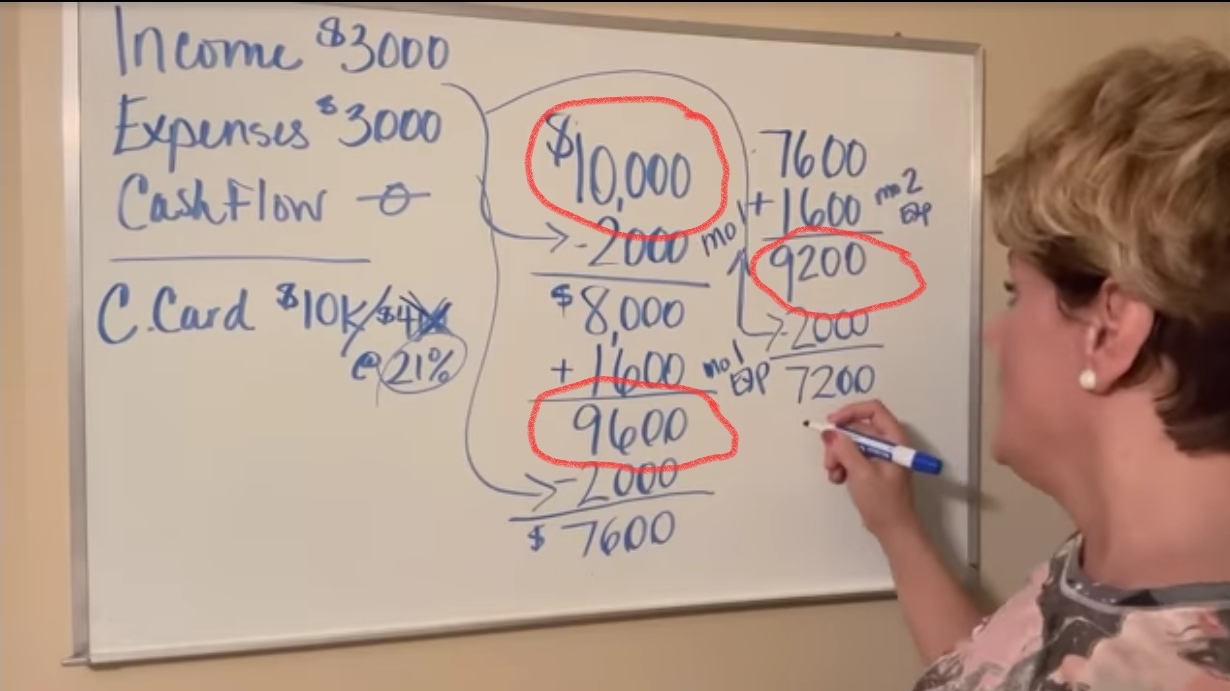 Income $3000
Expenses $3000
Cash Flow 0
C.Card $10K/$411
@ 21%
$10,000
-2000 mo 1
$8,000
+1600 mo 1 Exp
9600
-2000
$7600
7600
+1600 mo 2 Exp
9200
-2000
7200